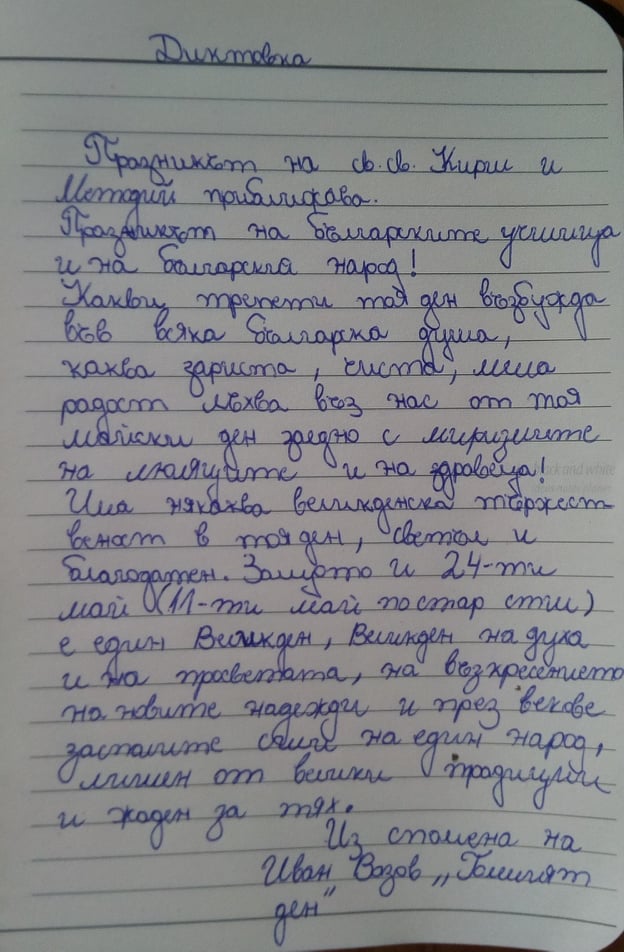 Диктовка
Празникът на св. св. Кирил и
Методий приближава.
Празникът на българските училища
и на българския народ!
Какви трепети тоя ден възбужда
във всяка българска душа,
каква зариста, чиста, мила
радост лъхва въз нас от тоя
майски ден заедно с миризмите
на люляците и на здравеца!
Има някаква великденска тържест
веност в тоя ден, светъл и
благодатен. Защото и 24-ти
май (11-ти май по стар стил)
е един Великден, Великден на духа
и на просветата, на възкресението
на новите надежди и през векове
заспалите сили на един народ,
лишен от велики традиции
и жаден за тях.
Из спомена на
Иван Вазов „Големият
ден"